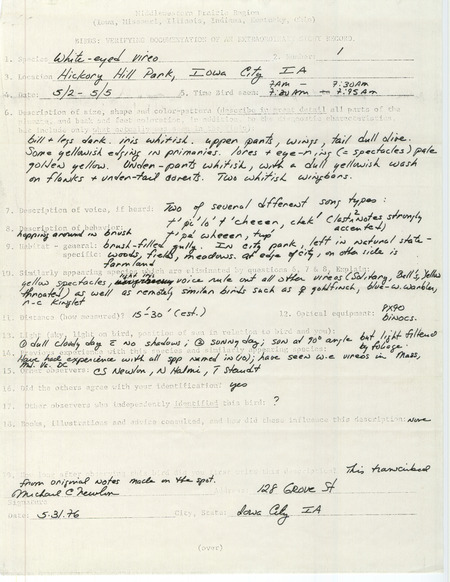 Middlewestern Prairie Region
(Iowa, Missouri, Illinois, Indiana, Kentucky, Ohio)
VERIFYING DOCUMENTATION OF AN EXTRAORDINARY SIGHT RECORD
1. Species White-eyed vireo 2. Number: 1
3. Location Hickory Hill Park, Iowa City IA
7AM - 7:30AM
4. Date: 5/2 - 5/5 5. Time Bird seen: 7:30 AM to 7:45 AM
6. Description of size, shape and color-pattern (describe in great detail all parts of the
bill + legs dark. iris whitish. upper parts, wings, tail dull olive.
Some yellowish edging in primaries. lores + eye-ring (= spectacles) pale
golden yellow. Under-parts whitish, with a dull yellowish wash
on flanks + under-tail coverts. Two whitish wingbars.
7. Description of voice, if heard: Two of several different song types:
t' pi' lo' t' cheeer, chek' (last 2 notes strongly
accented)
8. Description of behavior: t' pé wheeer, tup'
hopping around in brush
9. Habitat - general: brush-filled gully. In city park, left in natural state -
specific: woods, fields, meadows. at edge of city, on other side is
farmland
10. Similarly appearing species which are eliminated by questions 6, 7 & 8. Explain:
yellow spectacles, voice rule out all other vireos (Solitary, Bell's, Yellow
throated) as well as remotely similar birds such as ♀ goldfinch, blue-w. warbler,
r-c kinglet
11. Distance (how measured)? 15-30' (est.) 12. Optical equipment:
binocs.
13. Light (sky, light on bird, position of sun in relation to bird and you):
① dull cloudy day c̄ no shadows; ② sunny day; sun at 70° angle but light filtered
by foliage.
14. Previous experience with this species and similarly appearing species:
Have had experience with all spp named in (10); have seen w.e vireos in Mass,
Md. Va. DC
15. Other observers: CS Newlon, N Halmi, T Staudt
16. Did the others agree with your identification? yes
17. Other observers who independently identified this bird: ?
18. Books, illustrations and advice consulted, and how did these influence this description: none
This transcribed
from original notes made on the spot.
Michael C Newlon 128 Grove St
Signature
Date: 5.31.76 City, State: Iowa City IA
(over)